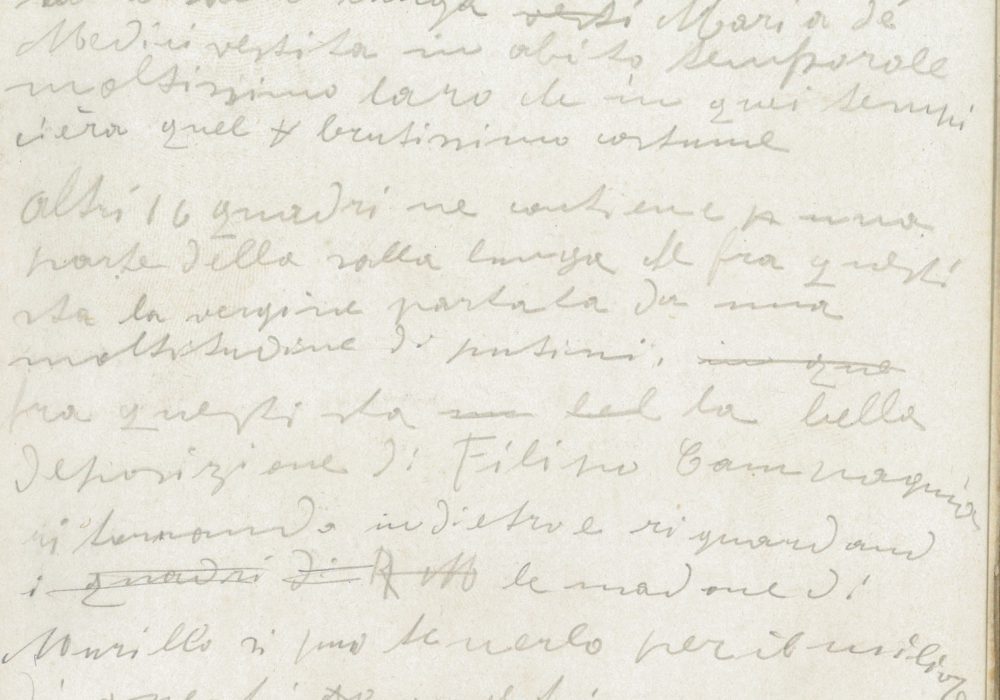 lunga ~~vesti~~ Maria de
Medici vestita in abito temporole
moltissimo laro che in quei tempi
ciera quel brutissimo costume
Altri 16 quadri ne contiene p una
parte della salla lunga che fra questi
sta la vergine portata da una
moltitudine di putini, ~~in que~~
fra questi sta ~~un~~ ~~bel~~ la bella
deposizione di Filipo Campagnia
ritornando indietro e riguardand
i ~~quadri~~ ~~di~~ le madone di
Murillo si può tenerlo per il milior